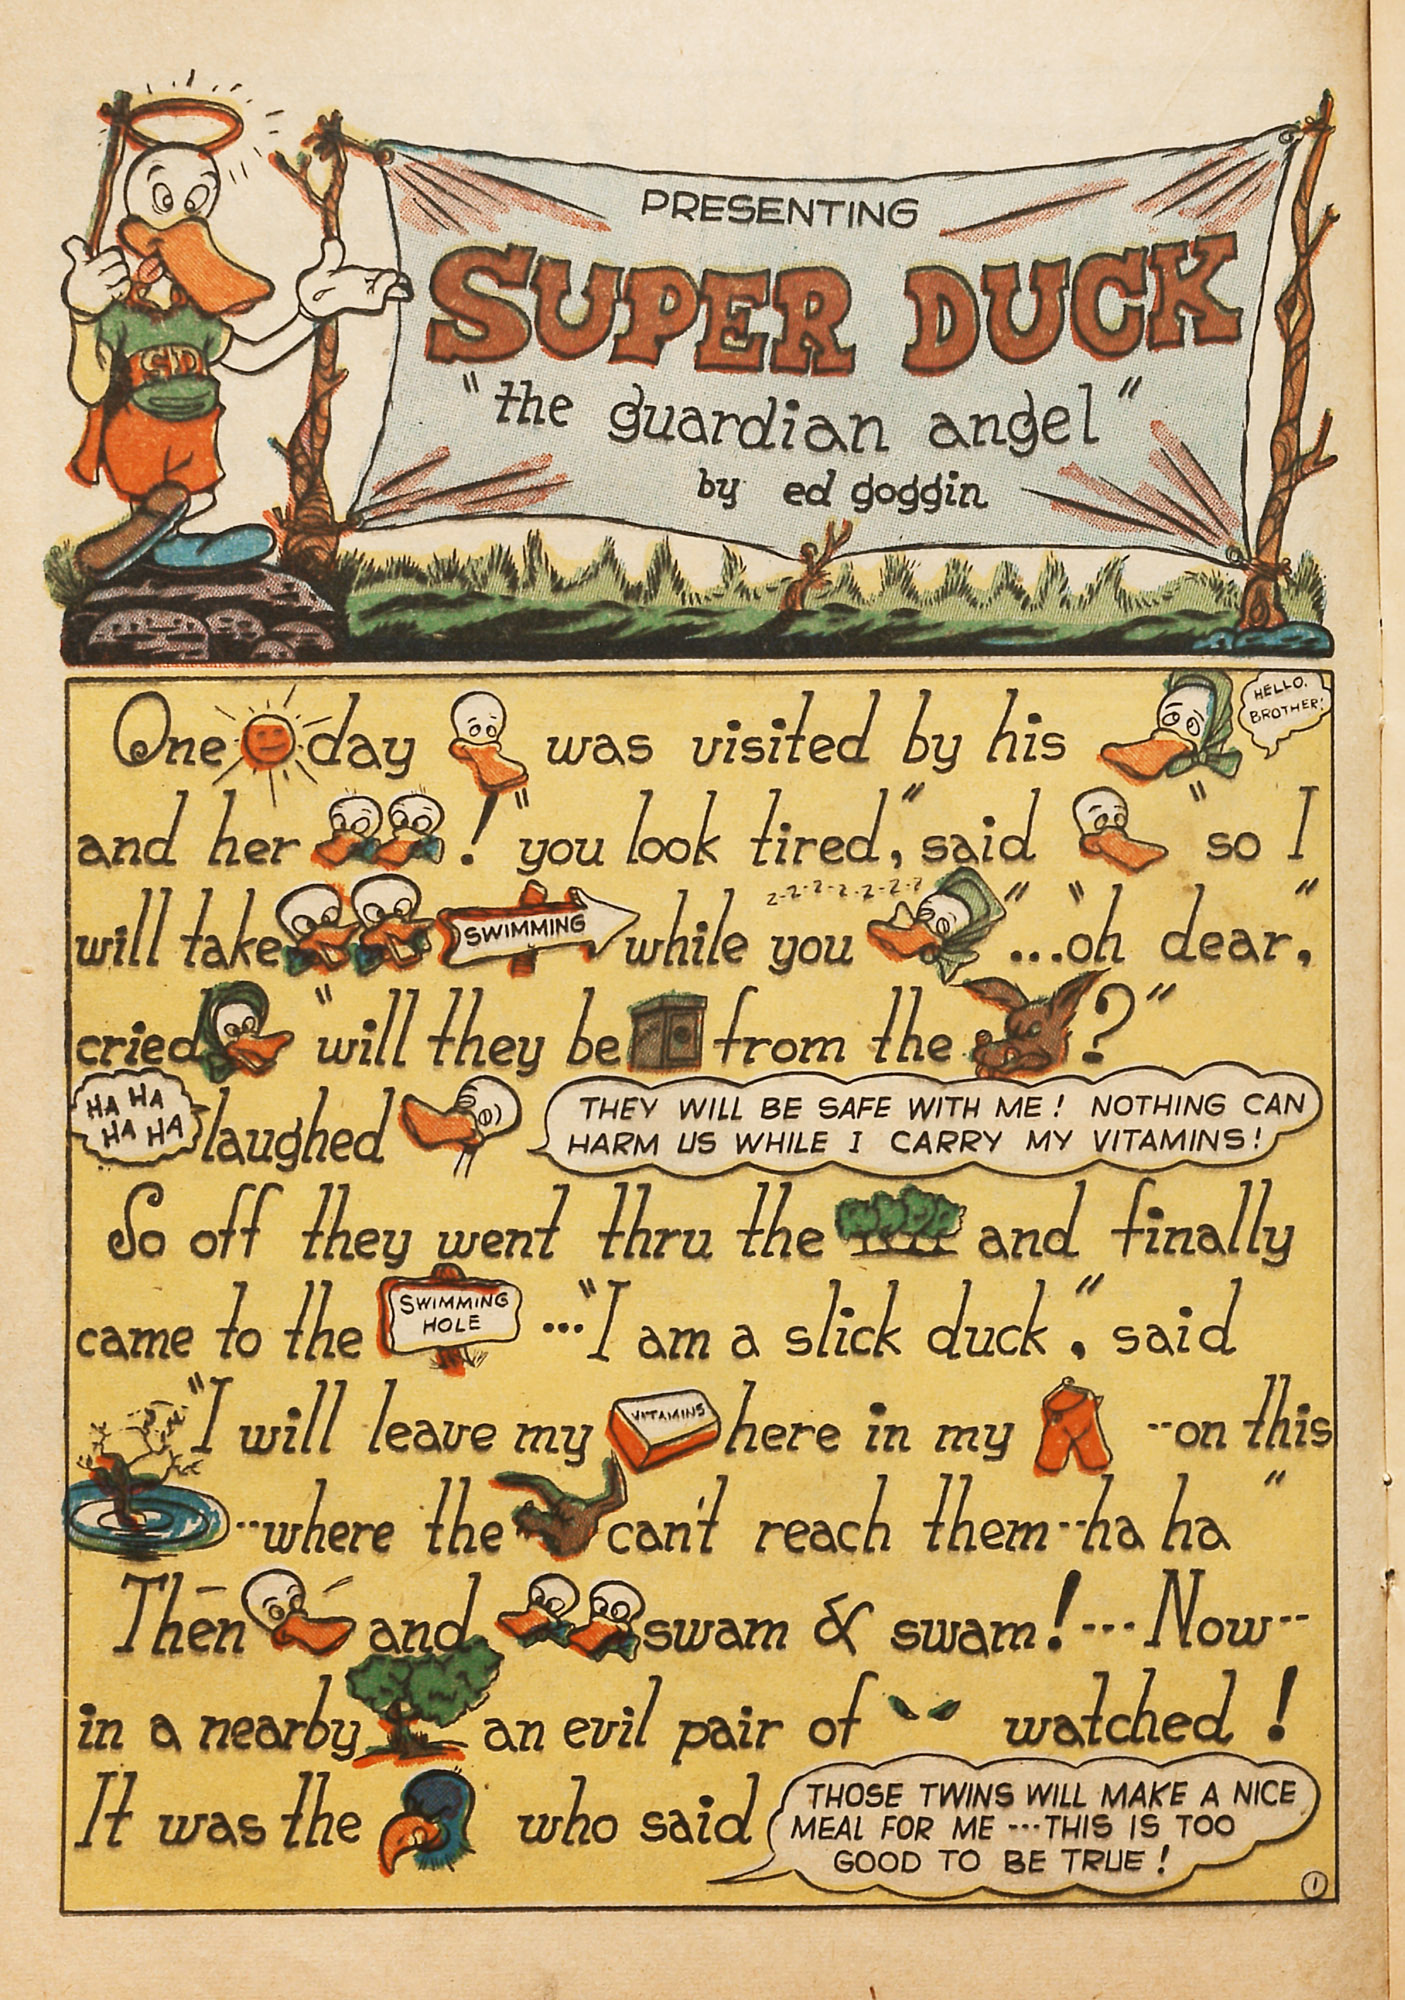 SD
PRESENTING
SUPER DUCK
"the guardian angel"
by ed goggin
One day was visited by his
HELLO,
BROTHER!
and her ! "you look tired," said " so I
will take SWIMMING while you z-z-z-z-z-z-z "...“oh dear,"
cried "will they be from the ?"
HA HA
HA HA
laughed
THEY WILL BE SAFE WITH ME! NOTHING CAN
HARM US WHILE I CARRY MY VITAMINS!
So off they went thru the and finally
came to the SWIMMING
HOLE ..."I am a slick duck", said
"I will leave my VITAMINS here in my --on this
--where the can't reach them--ha ha "
Then and swam & swam!---Now--
in a nearby an evil pair of watched!
It was the who said
THOSE TWINS WILL MAKE A NICE
MEAL FOR ME ---THIS IS TOO
GOOD TO BE TRUE!
1